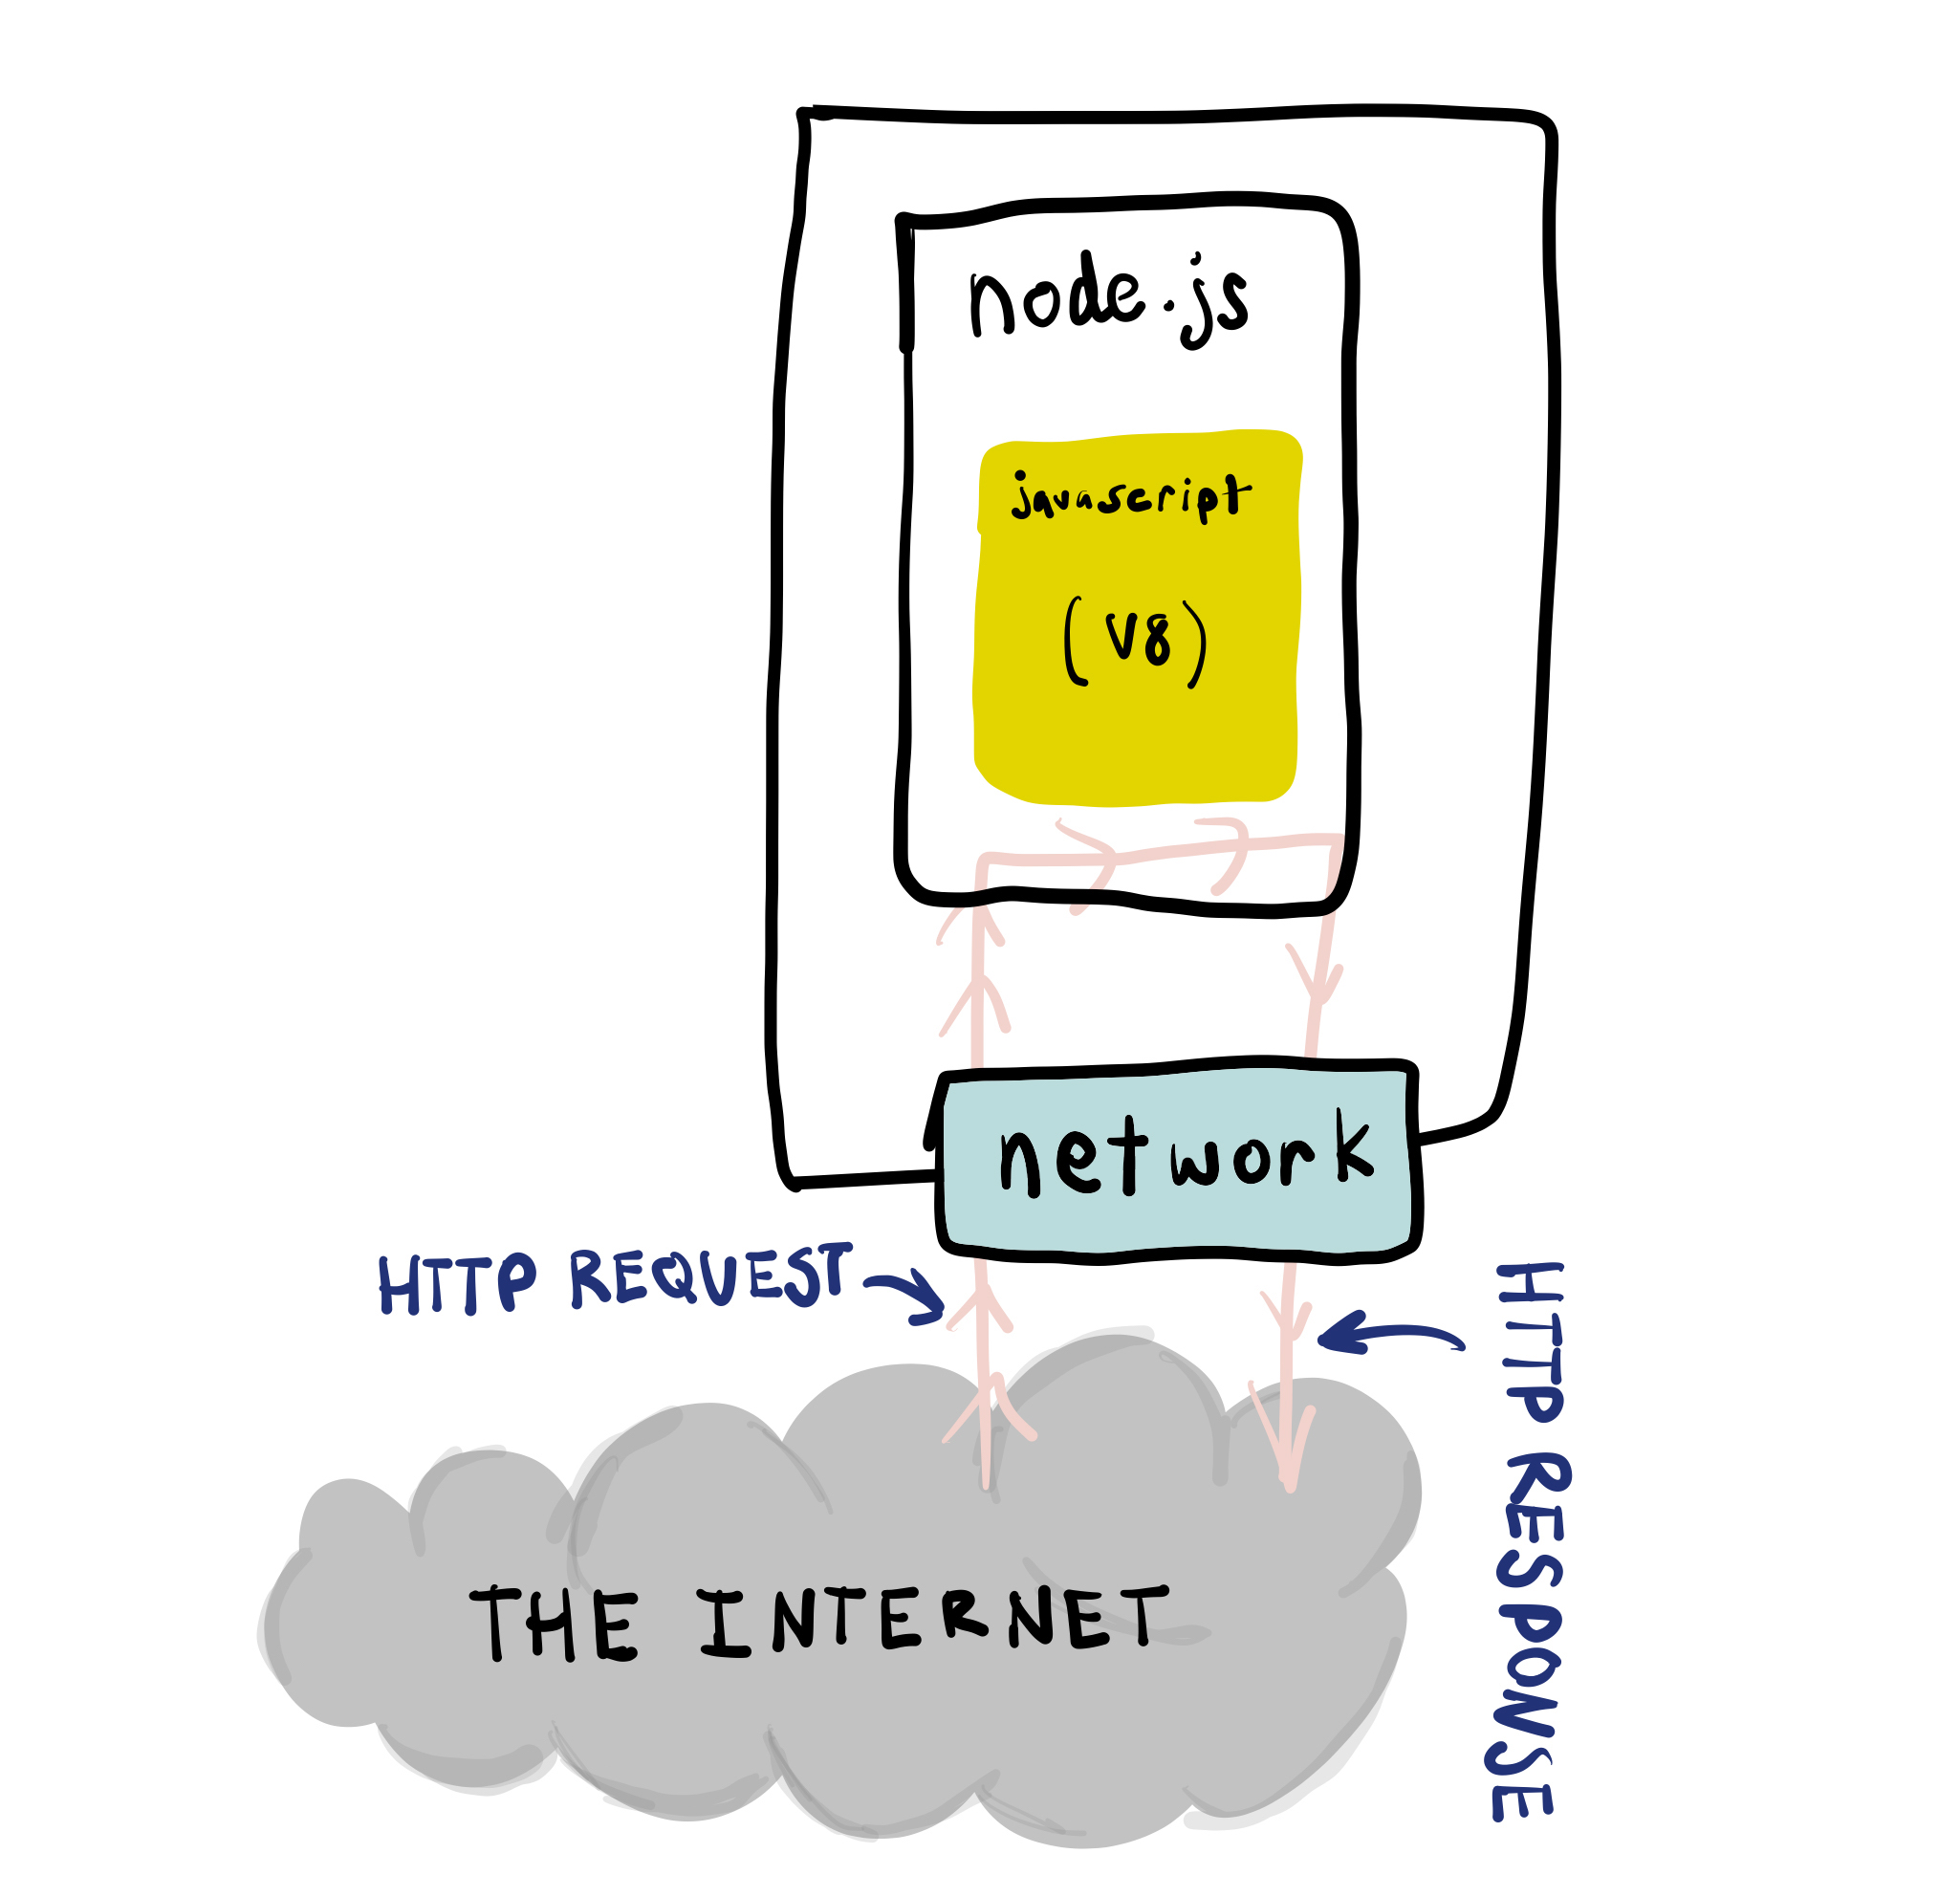 node.js
javascript
(V8)
network
HTTP REQUEST
HTTP RESPONSE
THE INTERNET